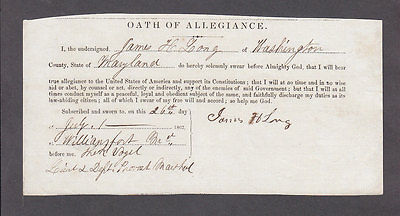 OATH OF ALLEGIANCE.
I, the undersigned, James H. Long of Washington
County, State of Maryland do hereby solemnly swear before Almighty God, that I will bear
true allegiance to the United States of America and support its Constitutions; that I will at no time and in no wise
aid or abet, by counsel or act, directly or indirectly, any of the enemies of said Government; but that I will at all
times conduct myself as a peaceful, loyal and obedient subject of the same, and faithfully discharge my duties as its
law-abiding citizen; all of which I swear of my free will and accord; so help me God.
Subscribed and sworn to, on this 26th day
of July 1862,
at Williamsport Md
before me. Vogel
James H Long
Lieut & Dept. Provost Marshal